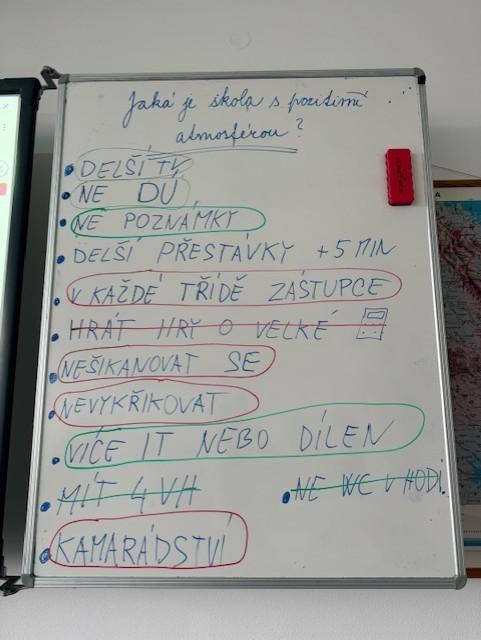 Jaká je škola s pozitivní
atmosférou?
DELŠÍ TV
NE DÚ
NE POZNÁMKY
DELŠÍ PŘESTÁVKY +5 MIN
V KAŽDÉ TŘÍDĚ ZÁSTUPCE
HRÁT HRY O VELKÉ
NEŠIKANOVAT SE
NEVYKŘIKOVAT
VÍCE IT NEBO DÍLEN
MÍT 4 VH
NE WC V HODI.
KAMARÁDSTVÍ